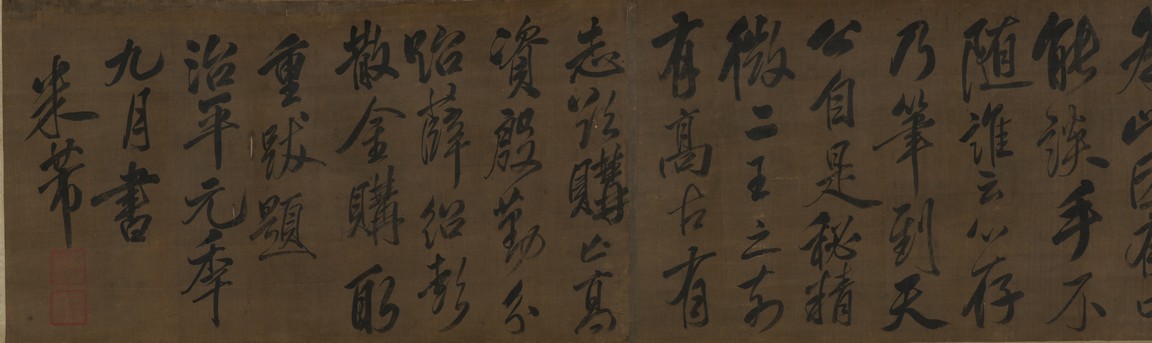 有口
能談手不
随誰云心存
乃筆到天
公自是秘精
微二王之前
有高古有
志欲購亡高
資殷勤分
貽薛紹彭
散金購取
重跋題
治平元年
九月書
米芾